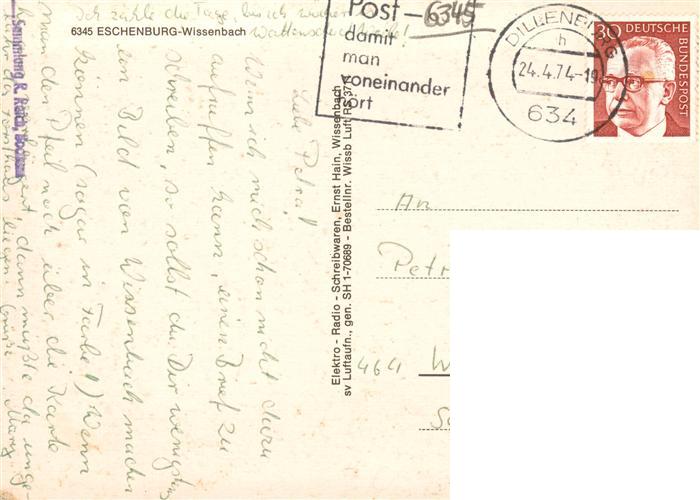 Ich zähle die Tage, bis ich wieder
6345 ESCHENBURG-Wissenbach
Post –
6345
damit
man
voneinander
hört
DILLENBURG
h
24.4.74-19
634
30 DEUTSCHE BUNDESPOST
Liebe Petra!
Wenn ich mich schon nicht dazu
aufraffen kann, einen Brief zu
schreiben, so sollst du Dir wenigstens
ein Bild von Wissenbach machen
können (sogar in Farbe!) Wenn
man den Pfeil noch über die Karte
dann müßte da unge-
Elektro - Radio - Schreibwaren, Ernst Hain, Wissenbach
sv Luftaufn., gen. SH 1-70689 - Bestellnr. Wissb Luft RS 37
An
Petr
464 W
Sammlung R. Reich, Bochum